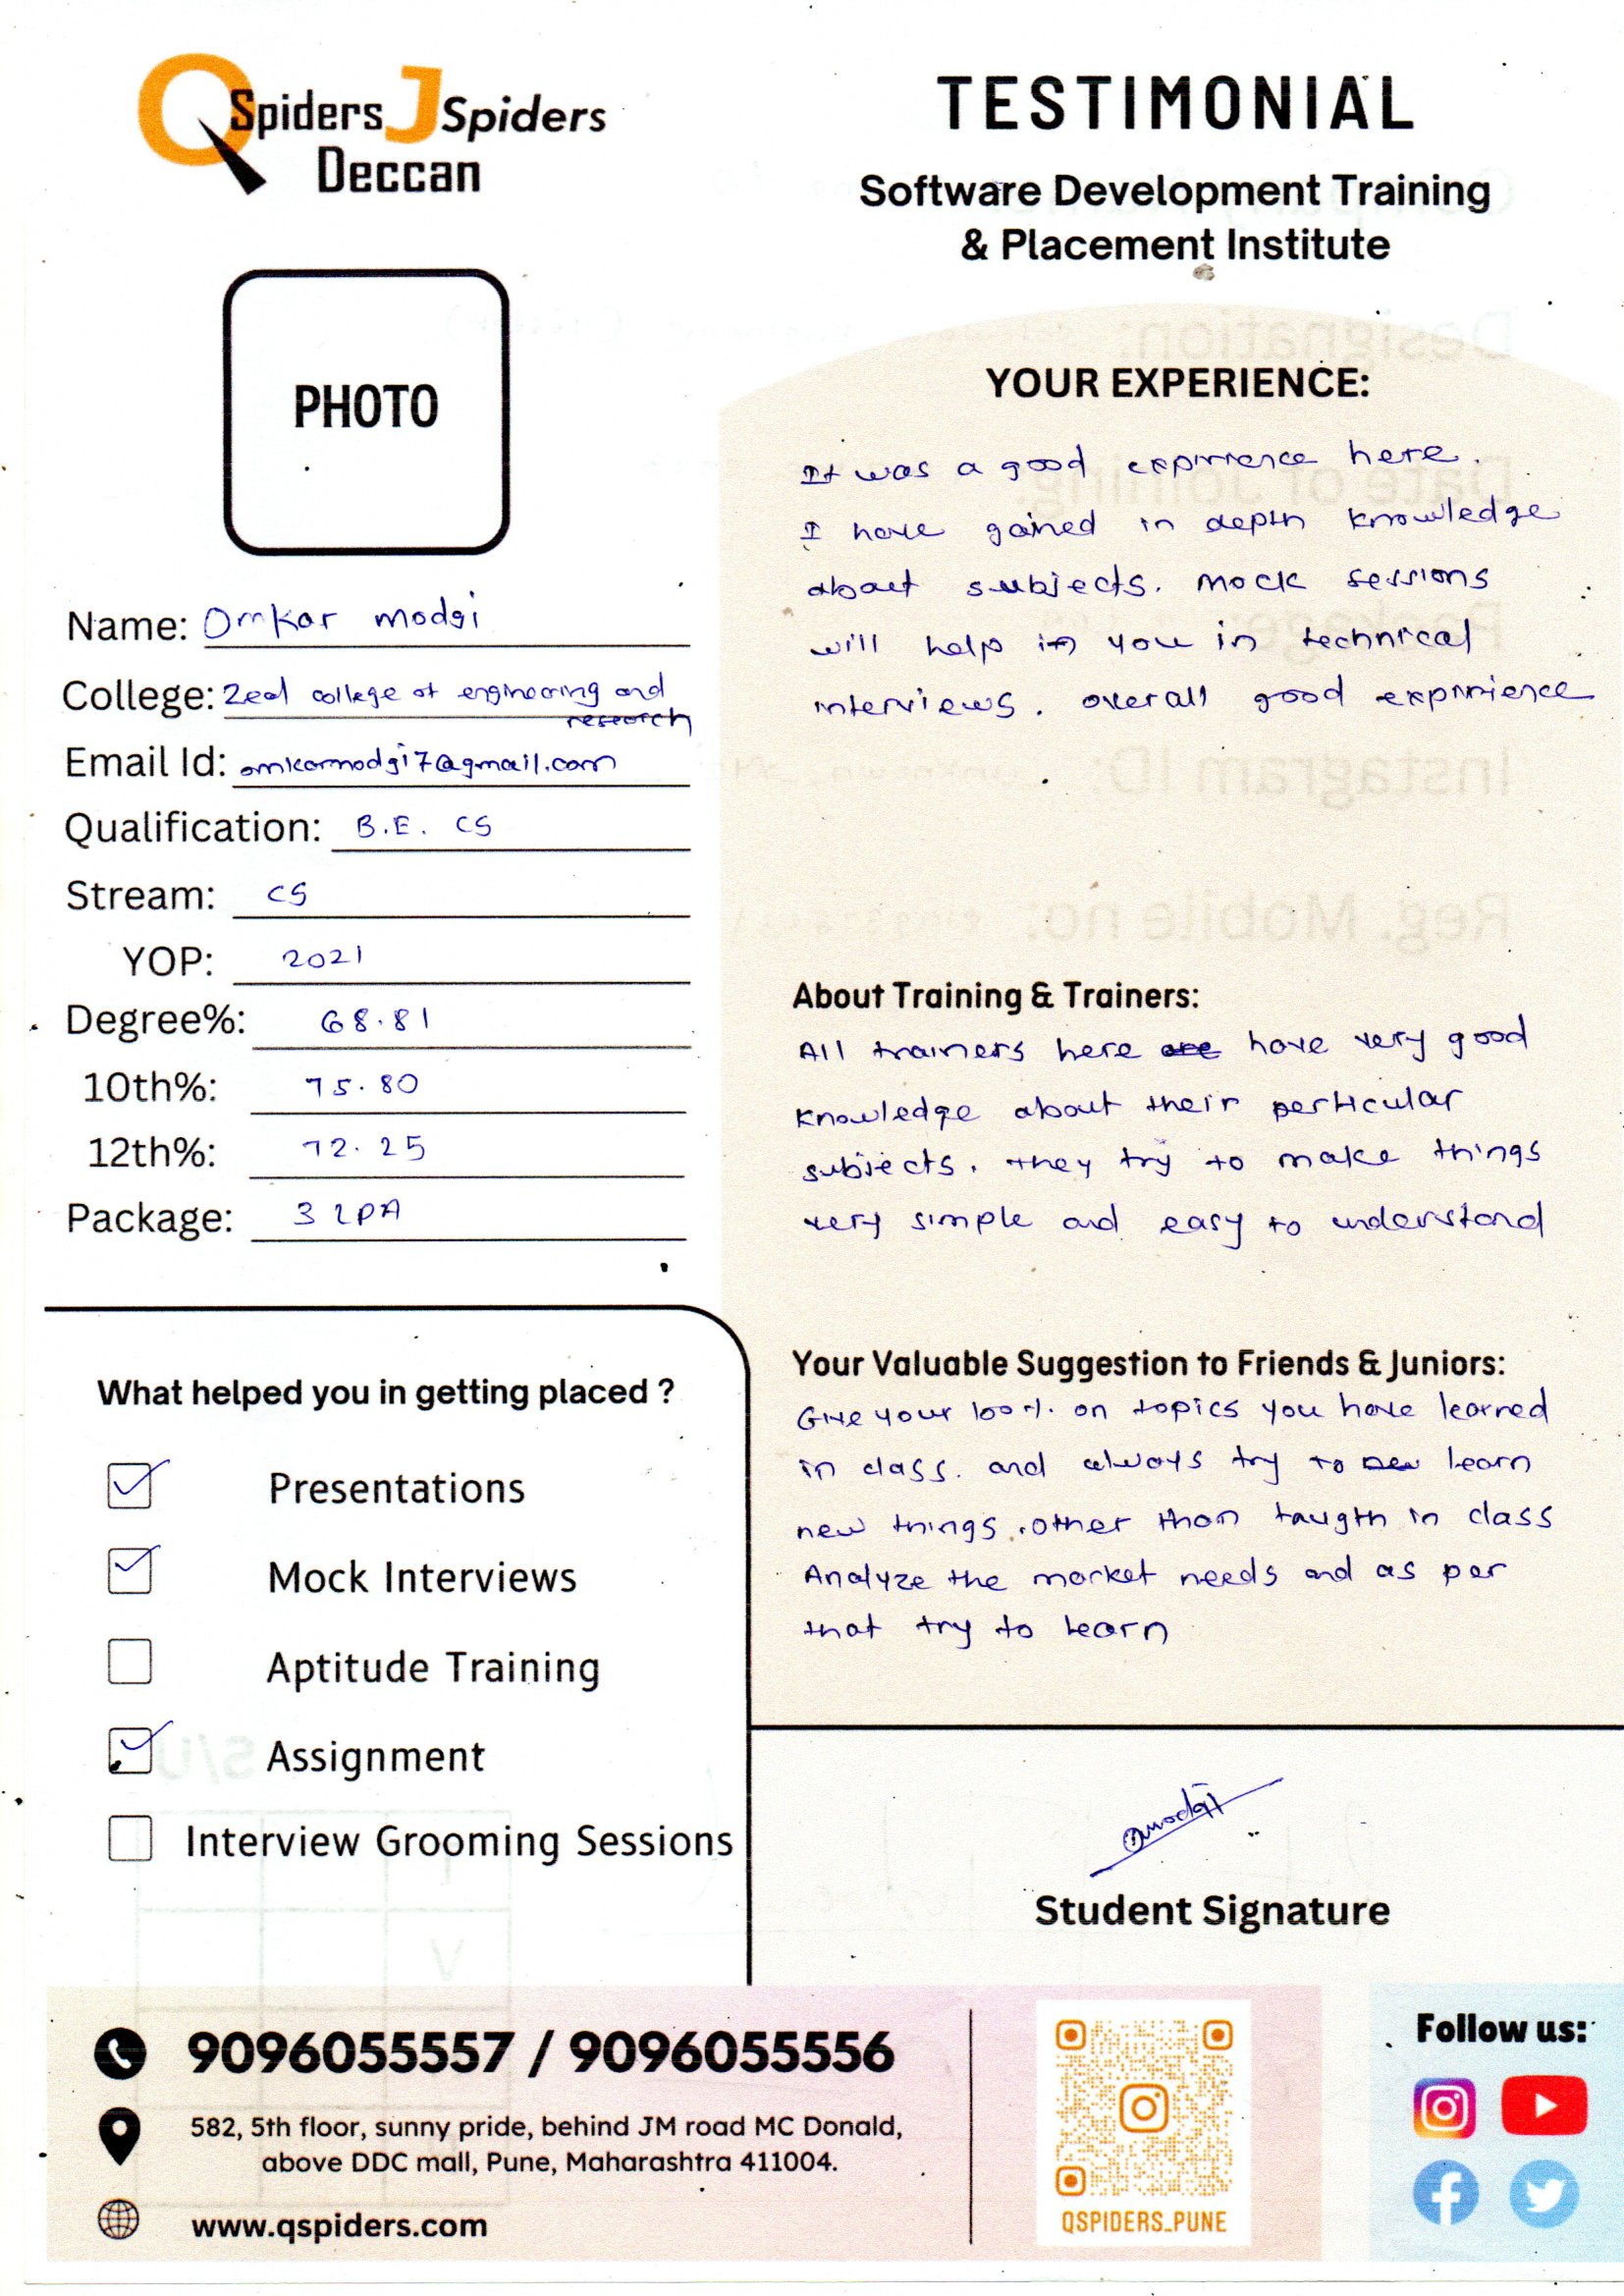 QSpiders JSpiders
Deccan
TESTIMONIAL
Software Development Training
& Placement Institute
PHOTO
Name: Omkar modgi
College: Zeal college of engineering and
research
Email Id: omkarmodgi7@gmail.com
Qualification: B.E. CS
Stream: CS
YOP: 2021
Degree%: 68.81
10th%: 75.80
12th%: 72.25
Package: 3 LPA
What helped you in getting placed ?
Presentations
Mock Interviews
Aptitude Training
Assignment
Interview Grooming Sessions
YOUR EXPERIENCE:
It was a good exprrience here.
I have gained in depth knowledge
about subjects. mock sessions
will help in you in technical
interviews. overall good exprrience
About Training & Trainers:
All trainers here are have very good
knowledge about their perticular
subjects. they try to make things
very simple and easy to understand
Your Valuable Suggestion to Friends & Juniors:
Give your 100%. on topics you have learned
in class. and always try to new learn
new things. other than taugth in class
Analyze the market needs and as per
that try to learn
omodgi
Student Signature
9096055557 / 9096055556
582, 5th floor, sunny pride, behind JM road MC Donald,
above DDC mall, Pune, Maharashtra 411004.
www.qspiders.com
QSPIDERS_PUNE
Follow us: